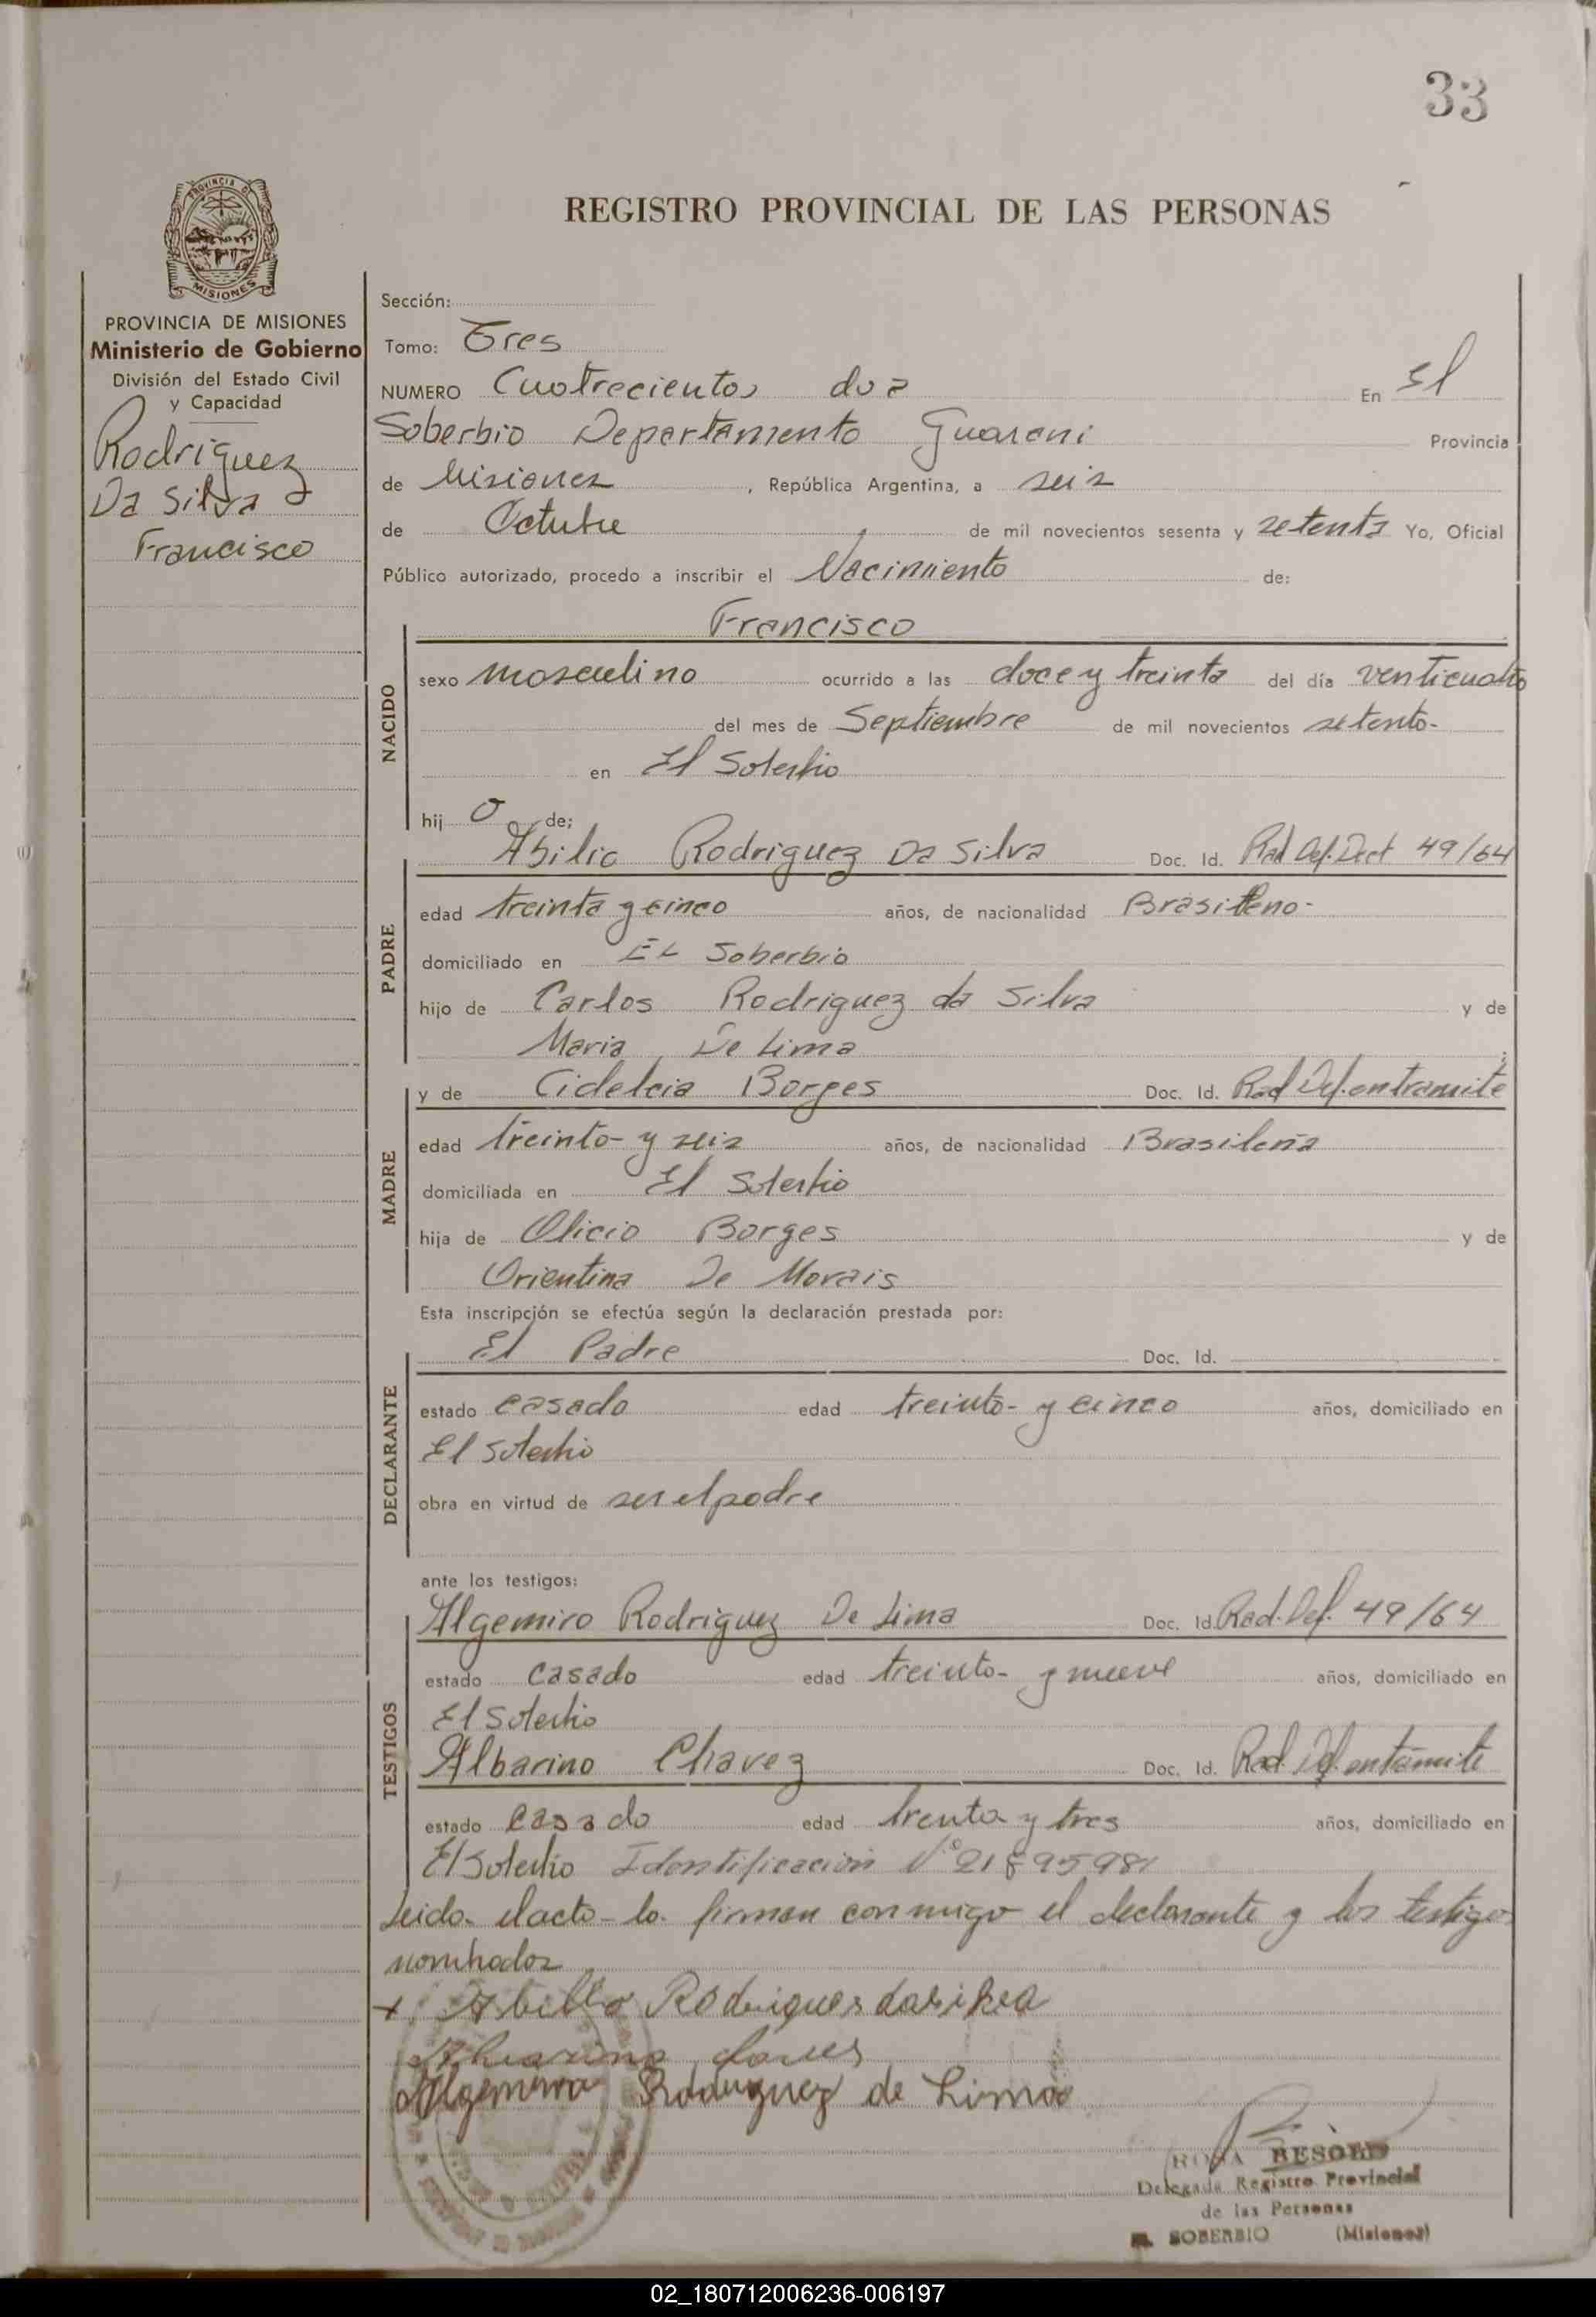 33
REGISTRO PROVINCIAL DE LAS PERSONAS
PROVINCIA DE
MISIONES
PROVINCIA DE MISIONES
Ministerio de Gobierno
División del Estado Civil
y Capacidad
Rodriguez
Da Silva
Francisco
Sección:
Tomo: Tres
NUMERO Cuatrecientos dos En El
Soberbio Departamento Guarani Provincia
de Misiones, República Argentina, a seis
de Octubre de mil novecientos sesenta y setenta Yo, Oficial
Público autorizado, procedo a inscribir el Nacimiento de:
NACIDO
Francisco
sexo masculino ocurrido a las doce y treinta del día venticuatro
del mes de Septiembre de mil novecientos setenta-
en El Soberbio
hij o de;
PADRE
Abilio Rodriguez Da Silva Doc. Id. Rad Def. Dect 49/64
edad treinta y cinco años, de nacionalidad Brasileno-
domiciliado en EL Soberbio
hijo de Carlos Rodriguez da Silva y de
Maria De Lima
MADRE
y de Cidelcia Borges Doc. Id. Rad Def. en tramite
edad treinta y seis años, de nacionalidad Brasileña
domiciliada en El Soberbio
hija de Olicio Borges y de
Orientina De Morais
Esta inscripción se efectúa según la declaración prestada por:
DECLARANTE
El Padre Doc. Id.
estado casado edad treinta y cinco años, domiciliado en
El Soberbio
obra en virtud de ser el padre
ante los testigos:
TESTIGOS
Algemiro Rodriguez De Lima Doc. Id. Rad. Def. 49/64
estado casado edad treinta y nueve años, domiciliado en
El Soberbio
Albarino Chavez Doc. Id. Rad. Def. en tramite
estado casado edad trenta y tres años, domiciliado en
El Soberbio Identificacion N° 21895981
Leida el acta la firman conmigo el declarante y los testigos
nombrados
+ Abillo Rodrigues dasilva
Rodriguez de Lima
ROSA BESOLD
Delegada Registro Provincial
de las Personas
EL SOBERBIO (Misiones)
02_180712006236-006197